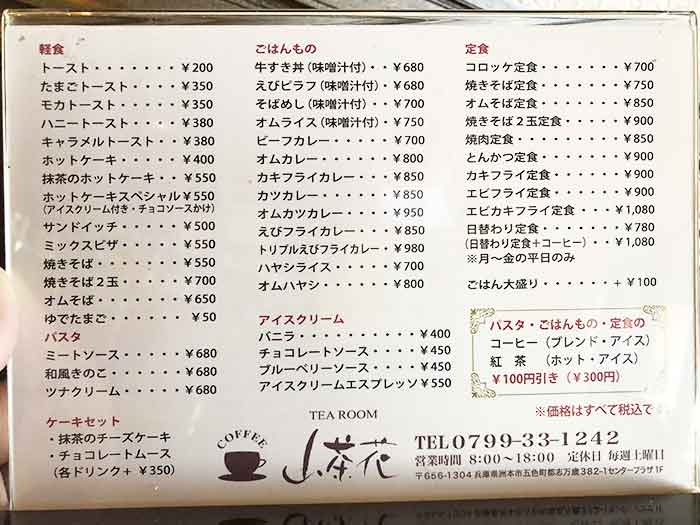 軽食
トースト・・・・・・・￥200
たまごトースト・・・・￥350
モカトースト・・・・・￥350
ハニートースト・・・・￥380
キャラメルトースト・・￥380
ホットケーキ・・・・・￥400
抹茶のホットケーキ・・￥550
ホットケーキスペシャル￥550
（アイスクリーム付き・チョコソースかけ）
サンドイッチ・・・・・￥500
ミックスピザ・・・・・￥550
焼きそば・・・・・・・￥550
焼きそば２玉・・・・・￥700
オムそば・・・・・・・￥650
ゆでたまご・・・・・・￥50
パスタ
ミートソース・・・・・￥680
和風きのこ・・・・・・￥680
ツナクリーム・・・・・￥680
ケーキセット
・抹茶のチーズケーキ
・チョコレートムース
（各ドリンク＋ ￥350）
ごはんもの
牛すき丼（味噌汁付）・・￥680
えびピラフ（味噌汁付）・￥680
そばめし（味噌汁付）・・￥700
オムライス（味噌汁付）・￥750
ビーフカレー・・・・・・￥700
オムカレー・・・・・・・￥800
カキフライカレー・・・・￥850
カツカレー・・・・・・・￥850
オムカツカレー・・・・・￥950
えびフライカレー・・・・￥850
トリプルえびフライカレー・￥980
ハヤシライス・・・・・・￥700
オムハヤシ・・・・・・・￥800
アイスクリーム
バニラ・・・・・・・・・・￥400
チョコレートソース・・・・￥450
ブルーベリーソース・・・・￥450
アイスクリームエスプレッソ￥550
定食
コロッケ定食・・・・・・￥700
焼きそば定食・・・・・・￥750
オムそば定食・・・・・・￥850
焼きそば２玉定食・・・・￥900
焼肉定食・・・・・・・・￥850
とんかつ定食・・・・・・￥900
カキフライ定食・・・・・￥900
エビフライ定食・・・・・￥900
エビカキフライ定食・・・￥1,080
日替わり定食・・・・・・￥780
（日替わり定食＋コーヒー）・・￥1,080
※月〜金の平日のみ
ごはん大盛り・・・・・・＋￥100
パスタ・ごはんもの・定食の
コーヒー（ブレンド・アイス）
紅 茶 （ホット・アイス）
￥100円引き（￥300円）
※価格はすべて税込で
COFFEE
TEA ROOM
山茶花
TEL0799-33-1242
営業時間 8:00〜18:00 定休日 毎週土曜日
〒656-1304 兵庫県洲本市五色町都志万歳382-1センタープラザ1F